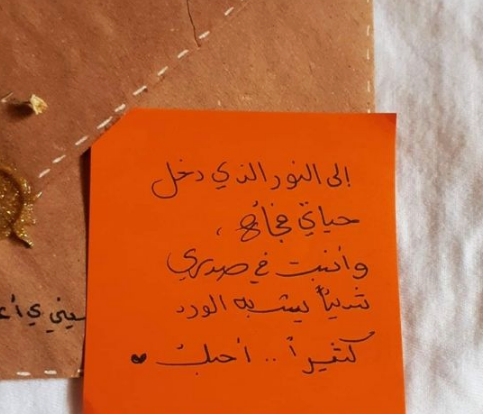 إلى النور الذي دخل
حياتي فجأة ،
وأنبت في صدري
شيئاً يشبه الورد
كثيراً .. أحبك